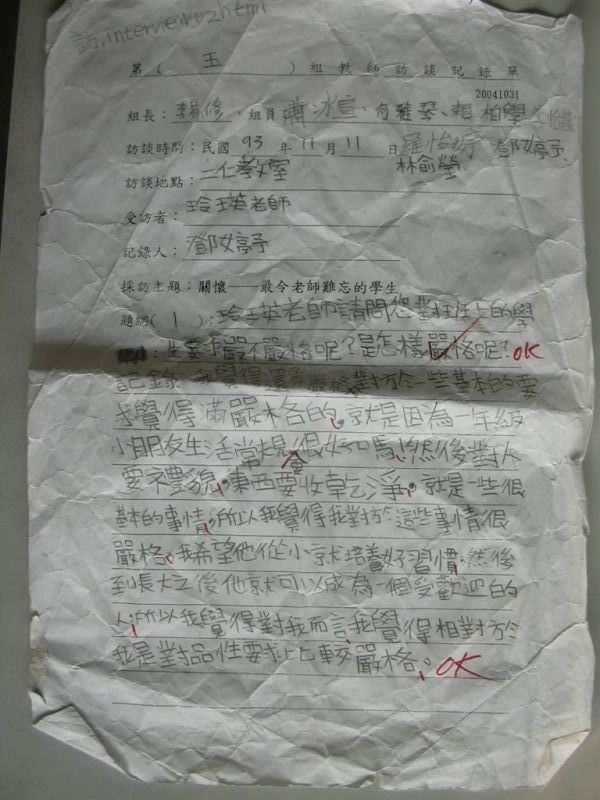 訪,interview02html
第( 五 )組教師訪談記錄單
20041031
組長:李易修,組員 蕭冰宣、向雅琴、賴柏學
訪談時間:民國 93 年 11 月 11 日 羅怡婷 鄧婷予、
訪談地點: 二仁教室 林俞瑩。
受訪者: 玲英老師
記錄人: 鄧婷予
採訪主題:關懷——最令老師難忘的學生
題綱( 1 ): 玲英老師請問您對班上的學
生要求嚴不嚴格呢?是怎樣嚴格呢?OK
記錄 我覺得還 對於一些基本的要
求覺得滿嚴格的,就是因為一年級
小朋友生活常規很好,然後對人
要禮貌,東西要收乾淨,就是一些很
基本的事情,所以我覺得我對於這些事情很
嚴格,我希望他從小就培養好習慣,然後
到長大之後他就可以成為一個受歡迎的
人,所以我覺得對我而言,我覺得相對於
我是對品性要求比較嚴格。OK